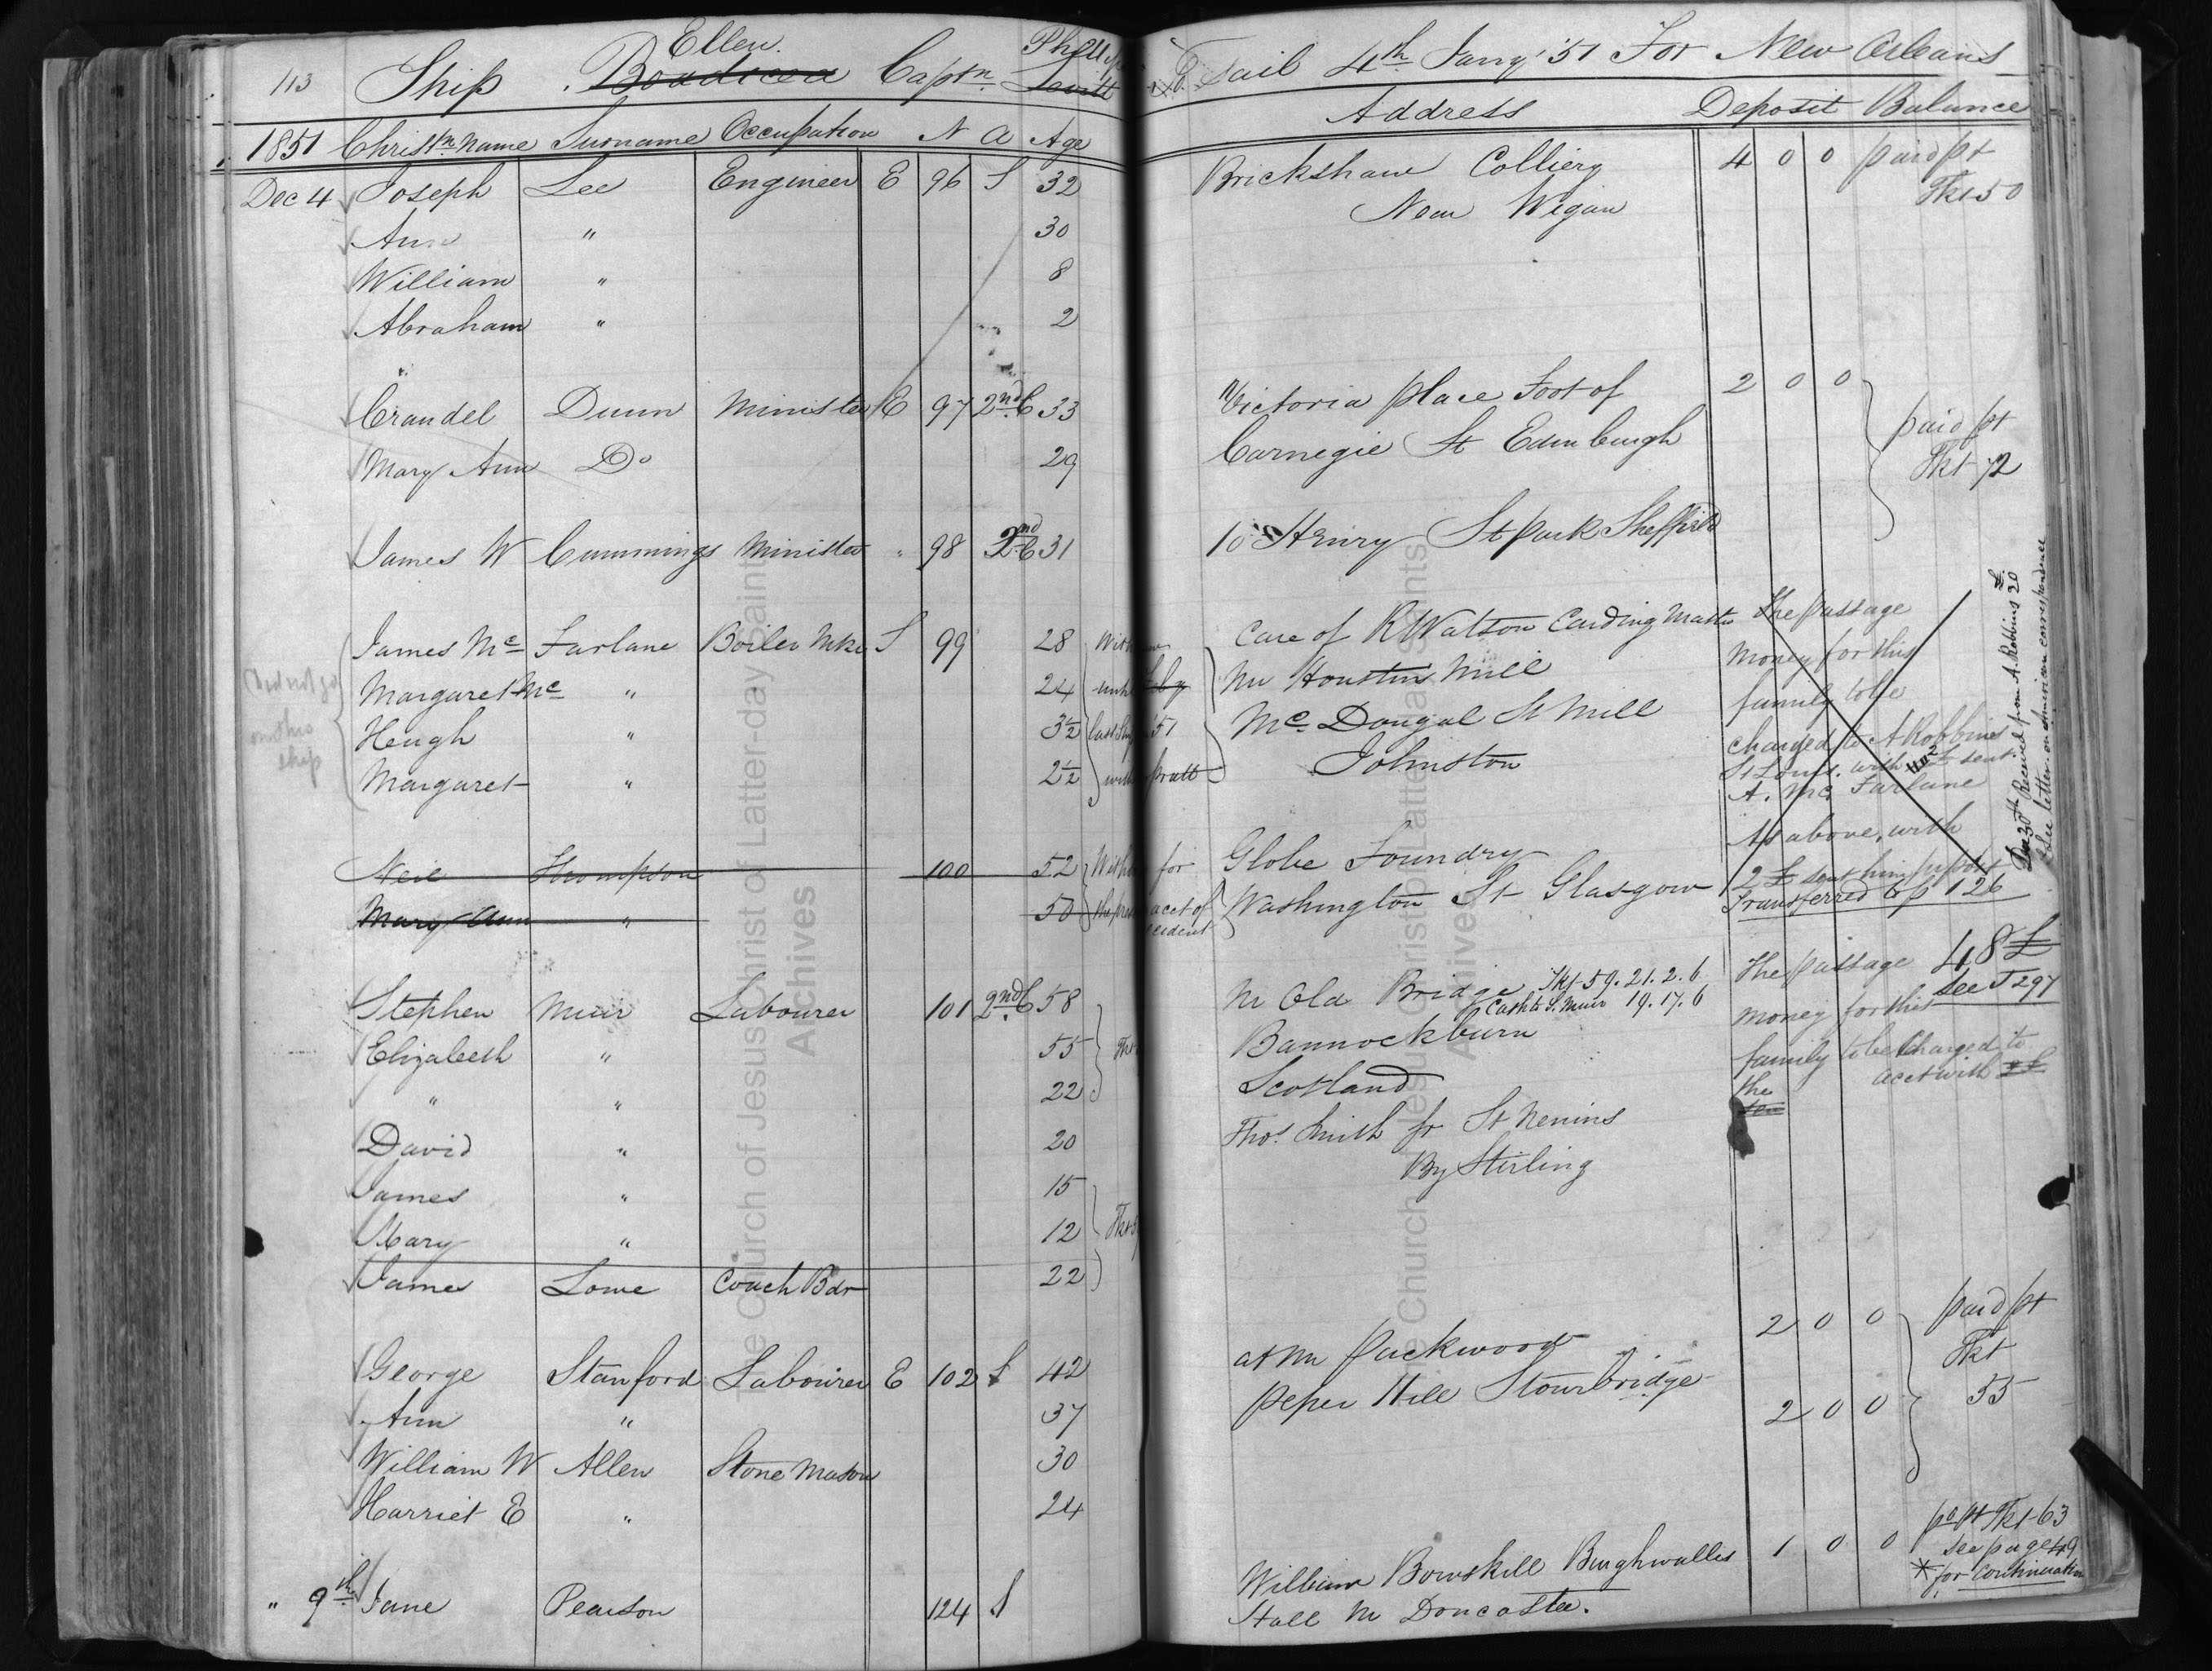 113 Ship Ellen. Boadicea Captn. Phillips Levitt To sail 4th Jany '51 For New Orleans
1851 Christn. Name Surname Occupation N A Age Address Deposit Balance
Dec 4 Joseph Lee Engineer E 96 S 32 Brickshaw Colliery 4 0 0 paid pt
Ann " 30 Near Wigan Tkt 50
William " 8
Abraham " 2
Crandel Dunn Minister E 97 2nd C 33 Victoria place Foot of 2 0 0 paid pt
Mary Ann Do 29 Carnegie St Edinburgh Tkt 72
James W Cummings Minister " 98 2nd C 31 10 Henry St park Sheffield
James Mc Farlane Boiler Mkr S 99 28 Care of R Watson Carding Master The passage
Margaret Mc " 24 Mr Houston Mill money for this
Did not go
on this
ship
Heugh " 3½ last ship 51 Mc Dougal St Mill family to be
Margaret " 2½ with Pratt Johnston charged to A Robbins
St Louis. with 2£ sent
A. Mc Farlane
Dec 30th Received from A. Robbins 20 £.
See letter on American correspondence
Neil Thompson 100 52 for Globe Foundry As above, with
Mary Ann " 50 acct of Washington St Glasgow 2 £ sent him pr post
Transferred to p 126
Stephen Muir Labourer 101 2nd C 58 Nr Old Bridge Tkt 59. 21. 2. 6 The passage 48 £
Cash to S. Muir 19. 17. 6 money for this See J 297
Elizabeth " 55 Bannockburn family to be Charged to
" " 22 Scotland the acct with
David " 20 Thos. Smith fr St Nenins
James " 15 By Stirling
Mary " 12
James Lowe Coach Bdr 22
George Stanford Labourer E 102 S 42 at Mr Packwood 2 0 0 paid pt
Ann " 37 Peper Hill Stourbridge Tkt
William W Allen Stone Mason 30 2 0 0 55
Harriet E " 24
" 9th Jane Pearson 124 S William Bowskill Burghwallis 1 0 0 pd pt Tkt 63
Hall Nr Doncaster. see page 119
* for continuation
The Church of Jesus Christ of Latter-day Saints
Archives
The Church of Jesus Christ of Latter-day Saints
Archives